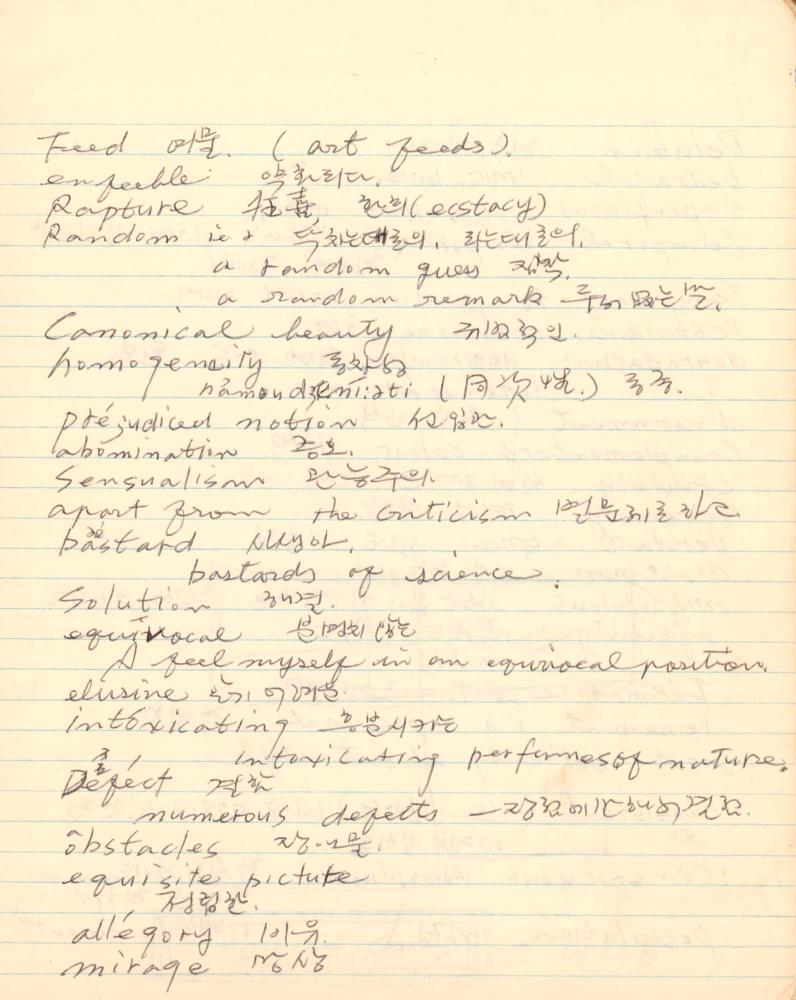 Feed 여물. (art feeds).
enfeeble 약화하다.
Rapture 狂喜, 환희(ecstacy)
Random 닥치는대로의, 되는대로의,
a random guess 짐작,
a random remark
Canonical beauty 규범적인.
homogeneity 동차성
(同次性.)
préjudiced notion 선입관.
abomination 증오.
Sensualism 관능주의.
apart from the criticism
bastard 사생아,
bastards of science.
Solution 해결.
equivocal 분명치 않는
I feel myself in an equivocal position.
elusine 어려운
intoxicating 흥분시키는
intoxicating perfumes of nature.
Defect 결함
numerous defects
obstacles 장애물.
equisite picture
정렬한.
allégory
mirage